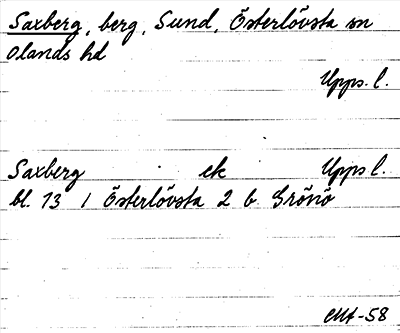 Saxberg, berg, Sund, Österlövsta sn
Olands hd
Upps. l.
Saxberg ek Upps l.
bl. 13 1 Österlövsta 2 b. Grönö